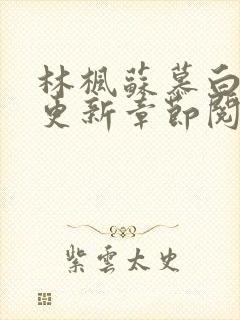 林楓蘇慕白
更新章節閱
紫雲太史